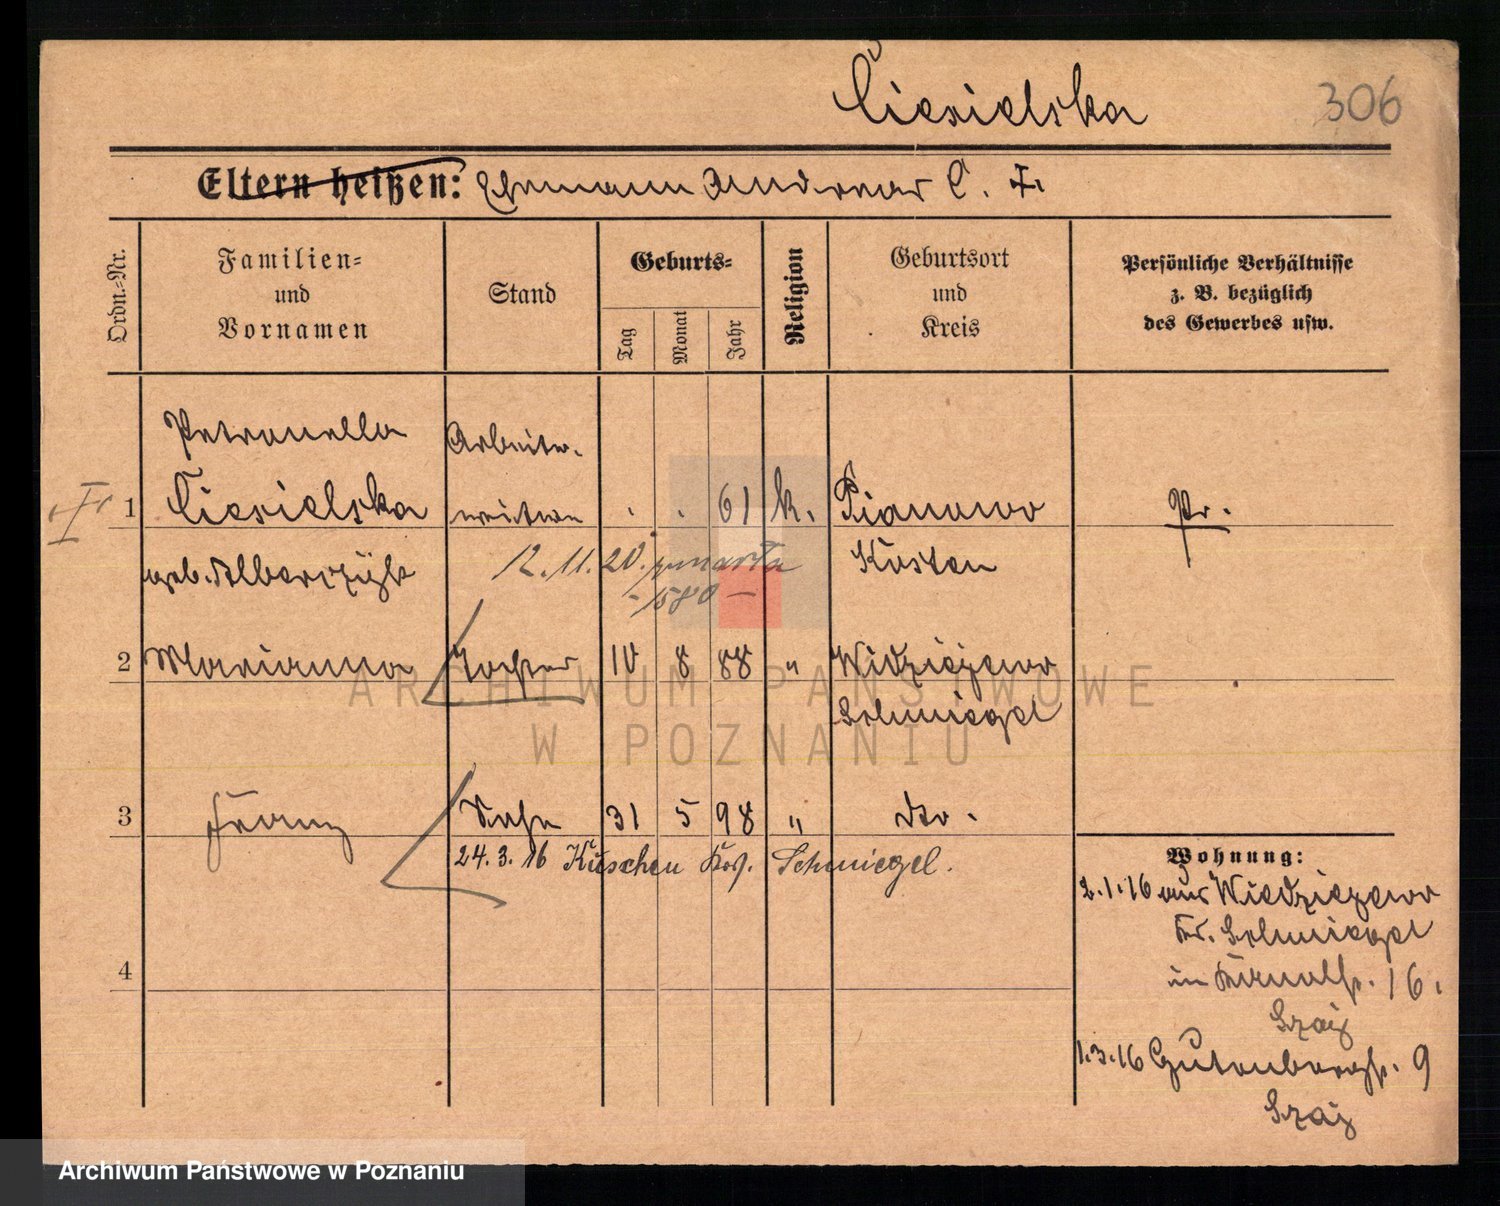 Ciesielska
306
Eltern heißen: Ehemann Andreas C. †
Ordn.-Nr.
Familien-
und
Vornamen
Stand
Geburts-
Tag
Monat
Jahr
Religion
Geburtsort
und
Kreis
Persönliche Verhältnisse
z. B. bezüglich
des Gewerbes usw.
Petronella Arbeiter-
1 Ciesielska witwe . . 61 k. Pianowo Pr.
geb. 12.11.20. zmarła Kosten
- 1580 -
2 Marianna Tochter 10 8 88 " Widziszewo
Schmiegel
3 Franz Sohn 31 5 98 " dto.
24.3.16 Kuschen Krs. Schmiegel.
Wohnung:
2.1.16 aus Wiedziszewo
Kr. Schmiegel
in 16.
1.3.16 Gutenbergstr. 9
4
ARCHIWUM PAŃSTWOWE
W POZNANIU
Archiwum Państwowe w Poznaniu